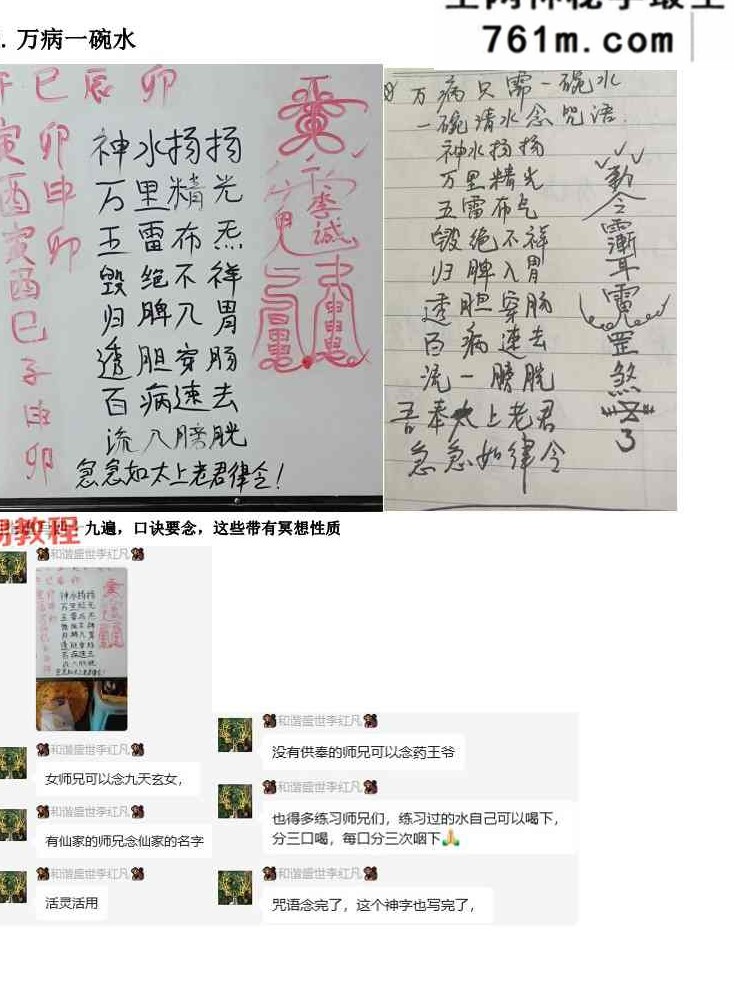 761m.com
. 万病一碗水
午 巳 辰 卯
寅 卯
酉 申
寅 卯
酉
巳
子
卯
神水扬扬
万里精光
五雷布炁
毁绝不祥
归脾入胃
透胆穿肠
百病速去
流入膀胱
急急如太上老君律令！
万病只需一碗水
一碗清水念咒语.
神水扬扬
万里精光
五雷布炁
毁绝不祥
归脾入胃
透胆穿肠
百病速去
流一膀胱
吾奉太上老君
急急如律令
九遍，口诀要念，这些带有冥想性质
易教程
和谐盛世李红凡
和谐盛世李红凡
女师兄可以念九天玄女，
和谐盛世李红凡
有仙家的师兄念仙家的名字
和谐盛世李红凡
活灵活用
和谐盛世李红凡
没有供奉的师兄可以念药王爷
和谐盛世李红凡
也得多练习师兄们，练习过的水自己可以喝下，
分三口喝，每口分三次咽下🙏
和谐盛世李红凡
咒语念完了，这个神字也写完了，